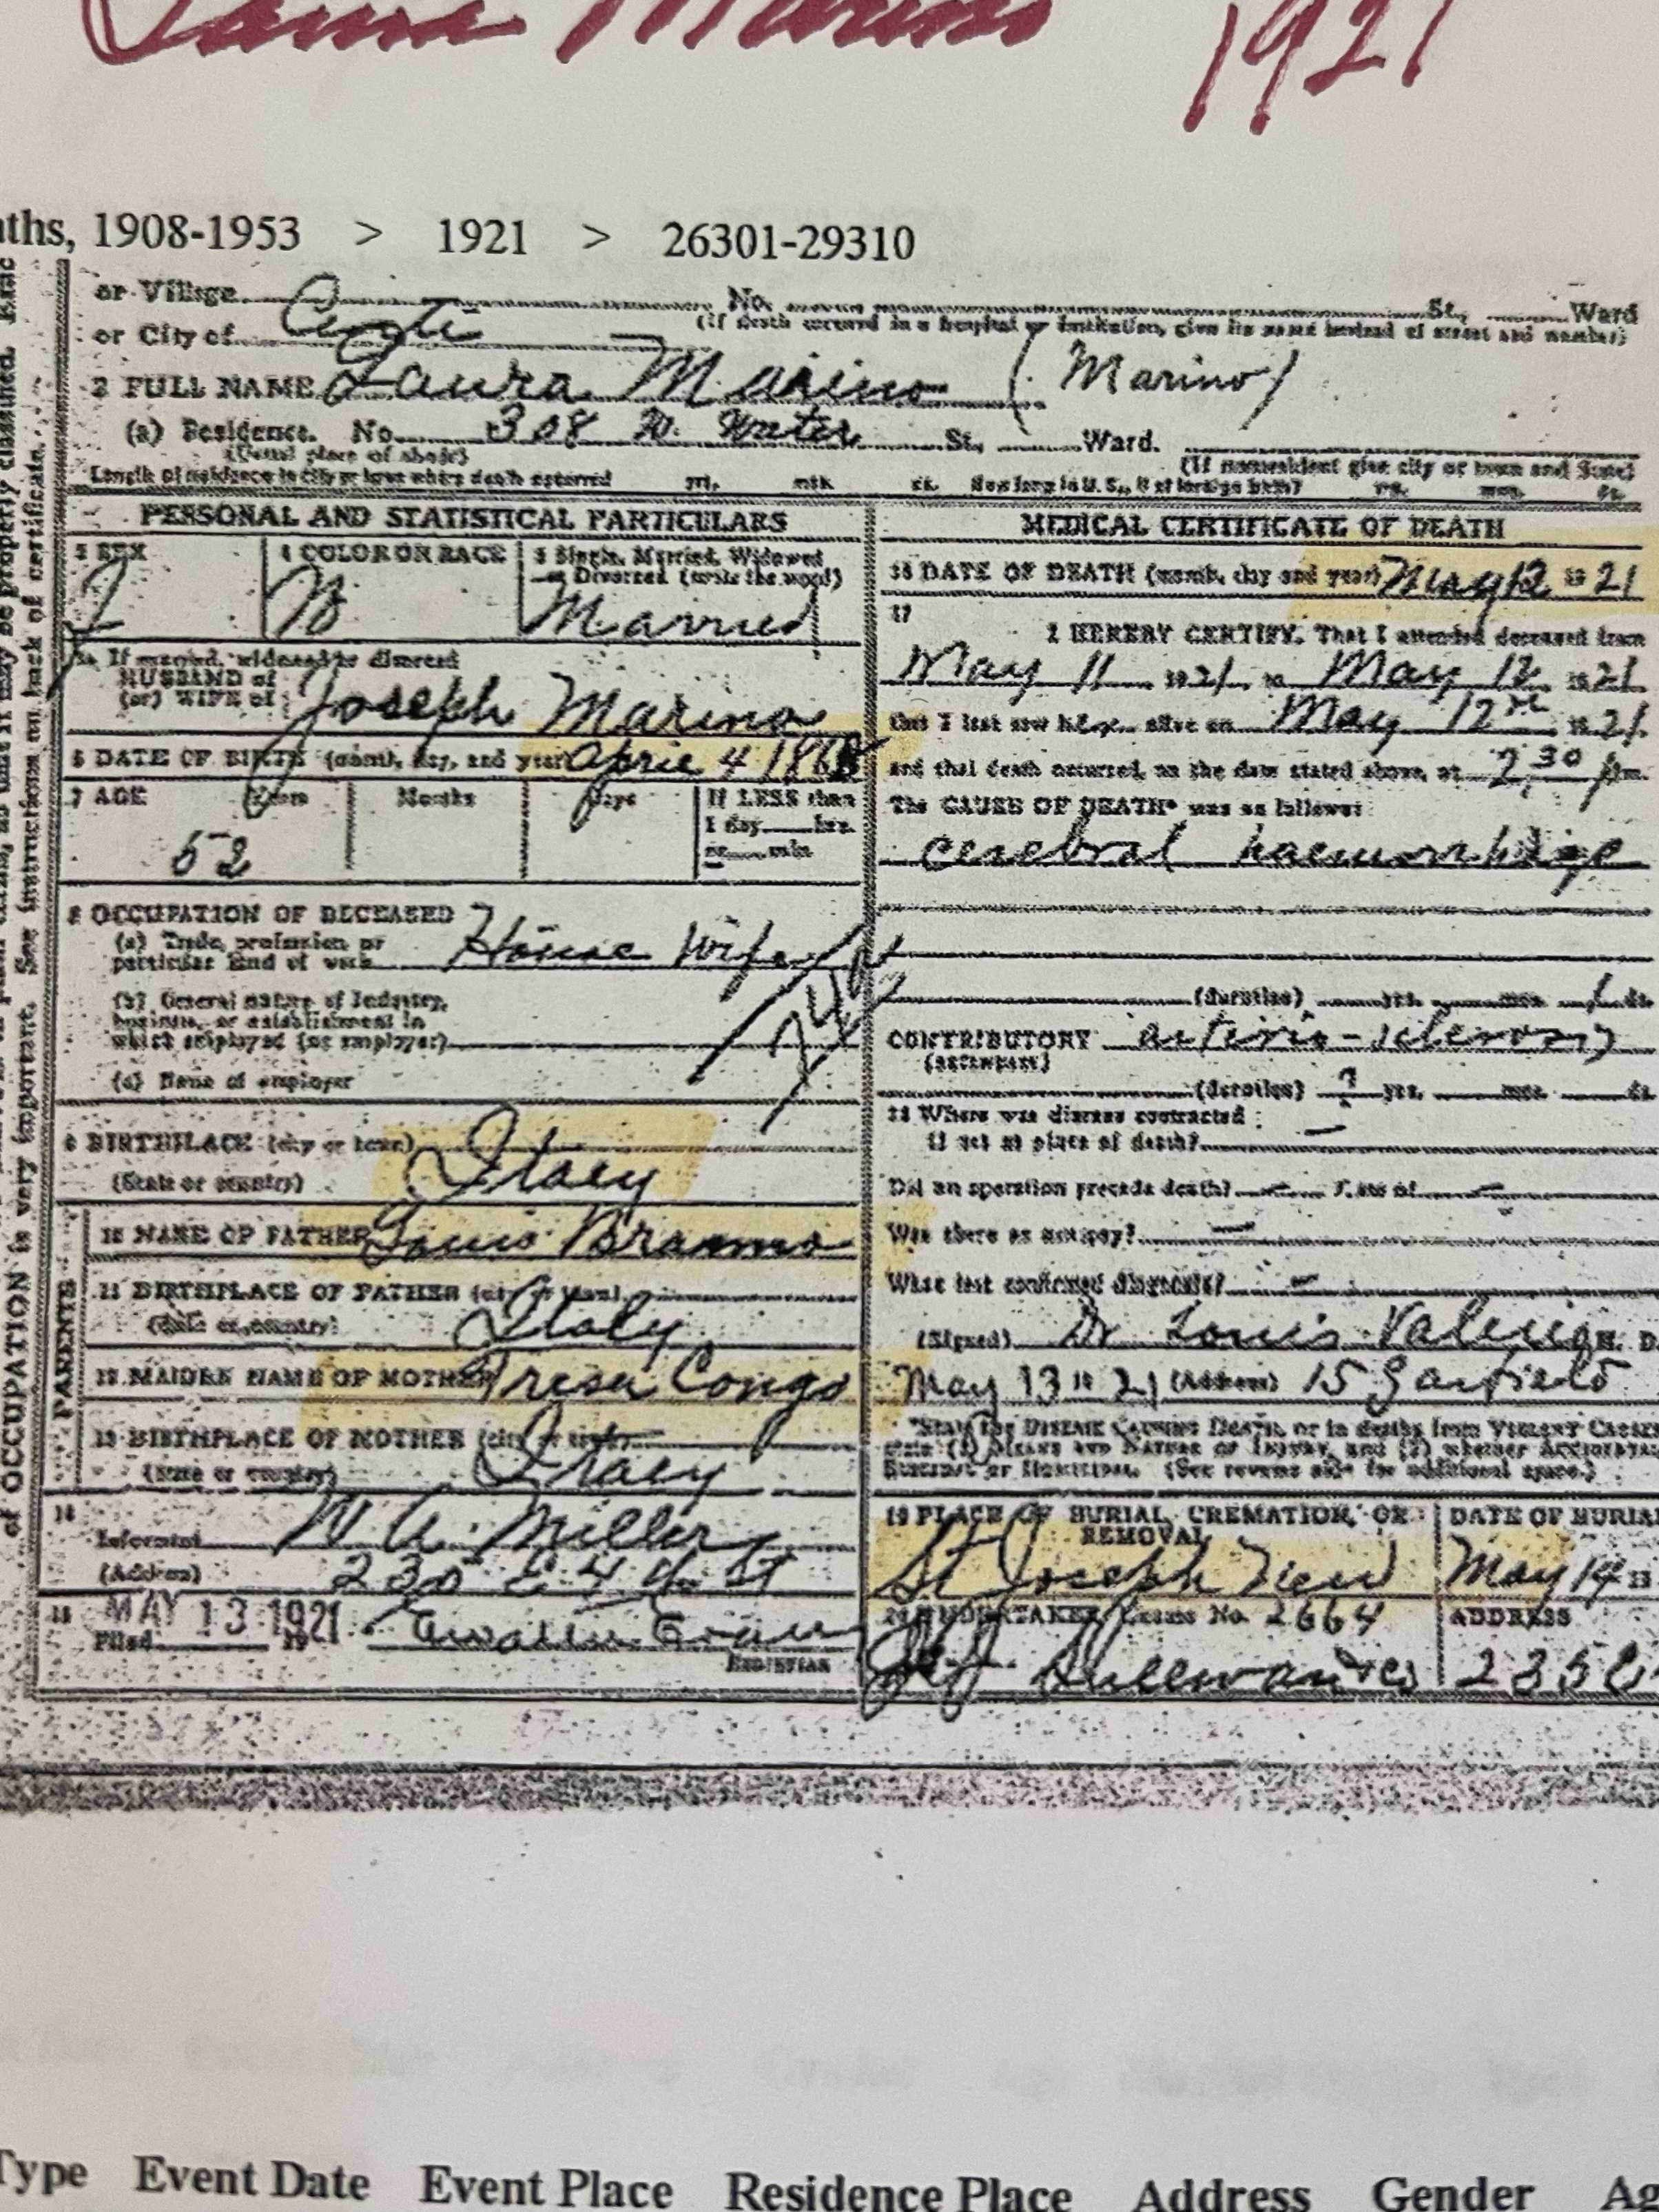 Laura Marino 1921
aths, 1908-1953 > 1921 > 26301-29310
or Village No. St., Ward
or City of City (If death occurred in a hospital or institution, give its name instead of street and number)
2 FULL NAME Laura Marino (Marino)
(a) Residence. No. 308 N. Water St., Ward.
(Usual place of abode) (If nonresident give city or town and State)
Length of residence in city or town where death occurred yrs. mos. ds. How long in U. S., if of foreign birth? yrs. mos. ds.
PERSONAL AND STATISTICAL PARTICULARS
3 SEX 4 COLOR OR RACE 5 Single, Married, Widowed
or Divorced (write the word)
F W Married
5a If married, widowed or divorced
HUSBAND of
(or) WIFE of Joseph Marino
6 DATE OF BIRTH (month, day, and year) April 4
7 AGE Years Months Days If LESS than
1 day hrs.
or min
52
8 OCCUPATION OF DECEASED
(a) Trade, profession or
particular kind of work House Wife
(b) General nature of Industry,
business, or establishment in
which employed (or employer)
(c) Name of employer
9 BIRTHPLACE (city or town)
(State or country) Italy
PARENTS
10 NAME OF FATHER Louis
11 BIRTHPLACE OF FATHER (city or town)
(State or country) Italy
12 MAIDEN NAME OF MOTHER Tresa Congo
13 BIRTHPLACE OF MOTHER (city or town)
(State or country) Italy
14
Informant Miller
(Address) 230 E 4th St
15 MAY 13 1921
Filed 19
REGISTRAR
MEDICAL CERTIFICATE OF DEATH
16 DATE OF DEATH (month, day and year) May 12 1921
17
I HEREBY CERTIFY, That I attended deceased from
May 11, 1921, to May 12, 1921,
that I last saw her alive on May 12th, 1921,
and that death occurred, on the date stated above, at 2.30 pm.
The CAUSE OF DEATH* was as follows:
cerebral haemorrhage
(duration) yrs. mos. 1 ds.
CONTRIBUTORY arterio-sclerosis
(SECONDARY)
(duration) ? yrs. mos. ds.
18 Where was disease contracted
if not at place of death? —
Did an operation precede death? — Date of —
Was there an autopsy? —
What test confirmed diagnosis? —
(Signed) Dr Louis M. D.
May 13 1921 (Address) 15 Garfield
*State the DISEASE CAUSING DEATH, or in deaths from VIOLENT CAUSES
state (1) MEANS AND NATURE OF INJURY, and (2) whether ACCIDENTAL,
SUICIDAL or HOMICIDAL. (See reverse side for additional space.)
19 PLACE OF BURIAL, CREMATION, OR
REMOVAL
DATE OF BURIAL
St Joseph New May 14 19
20 UNDERTAKER, License No. 2664 ADDRESS
of OCCUPATION is very important. See instructions on back of certificate.
Type Event Date Event Place Residence Place Address Gender Ag